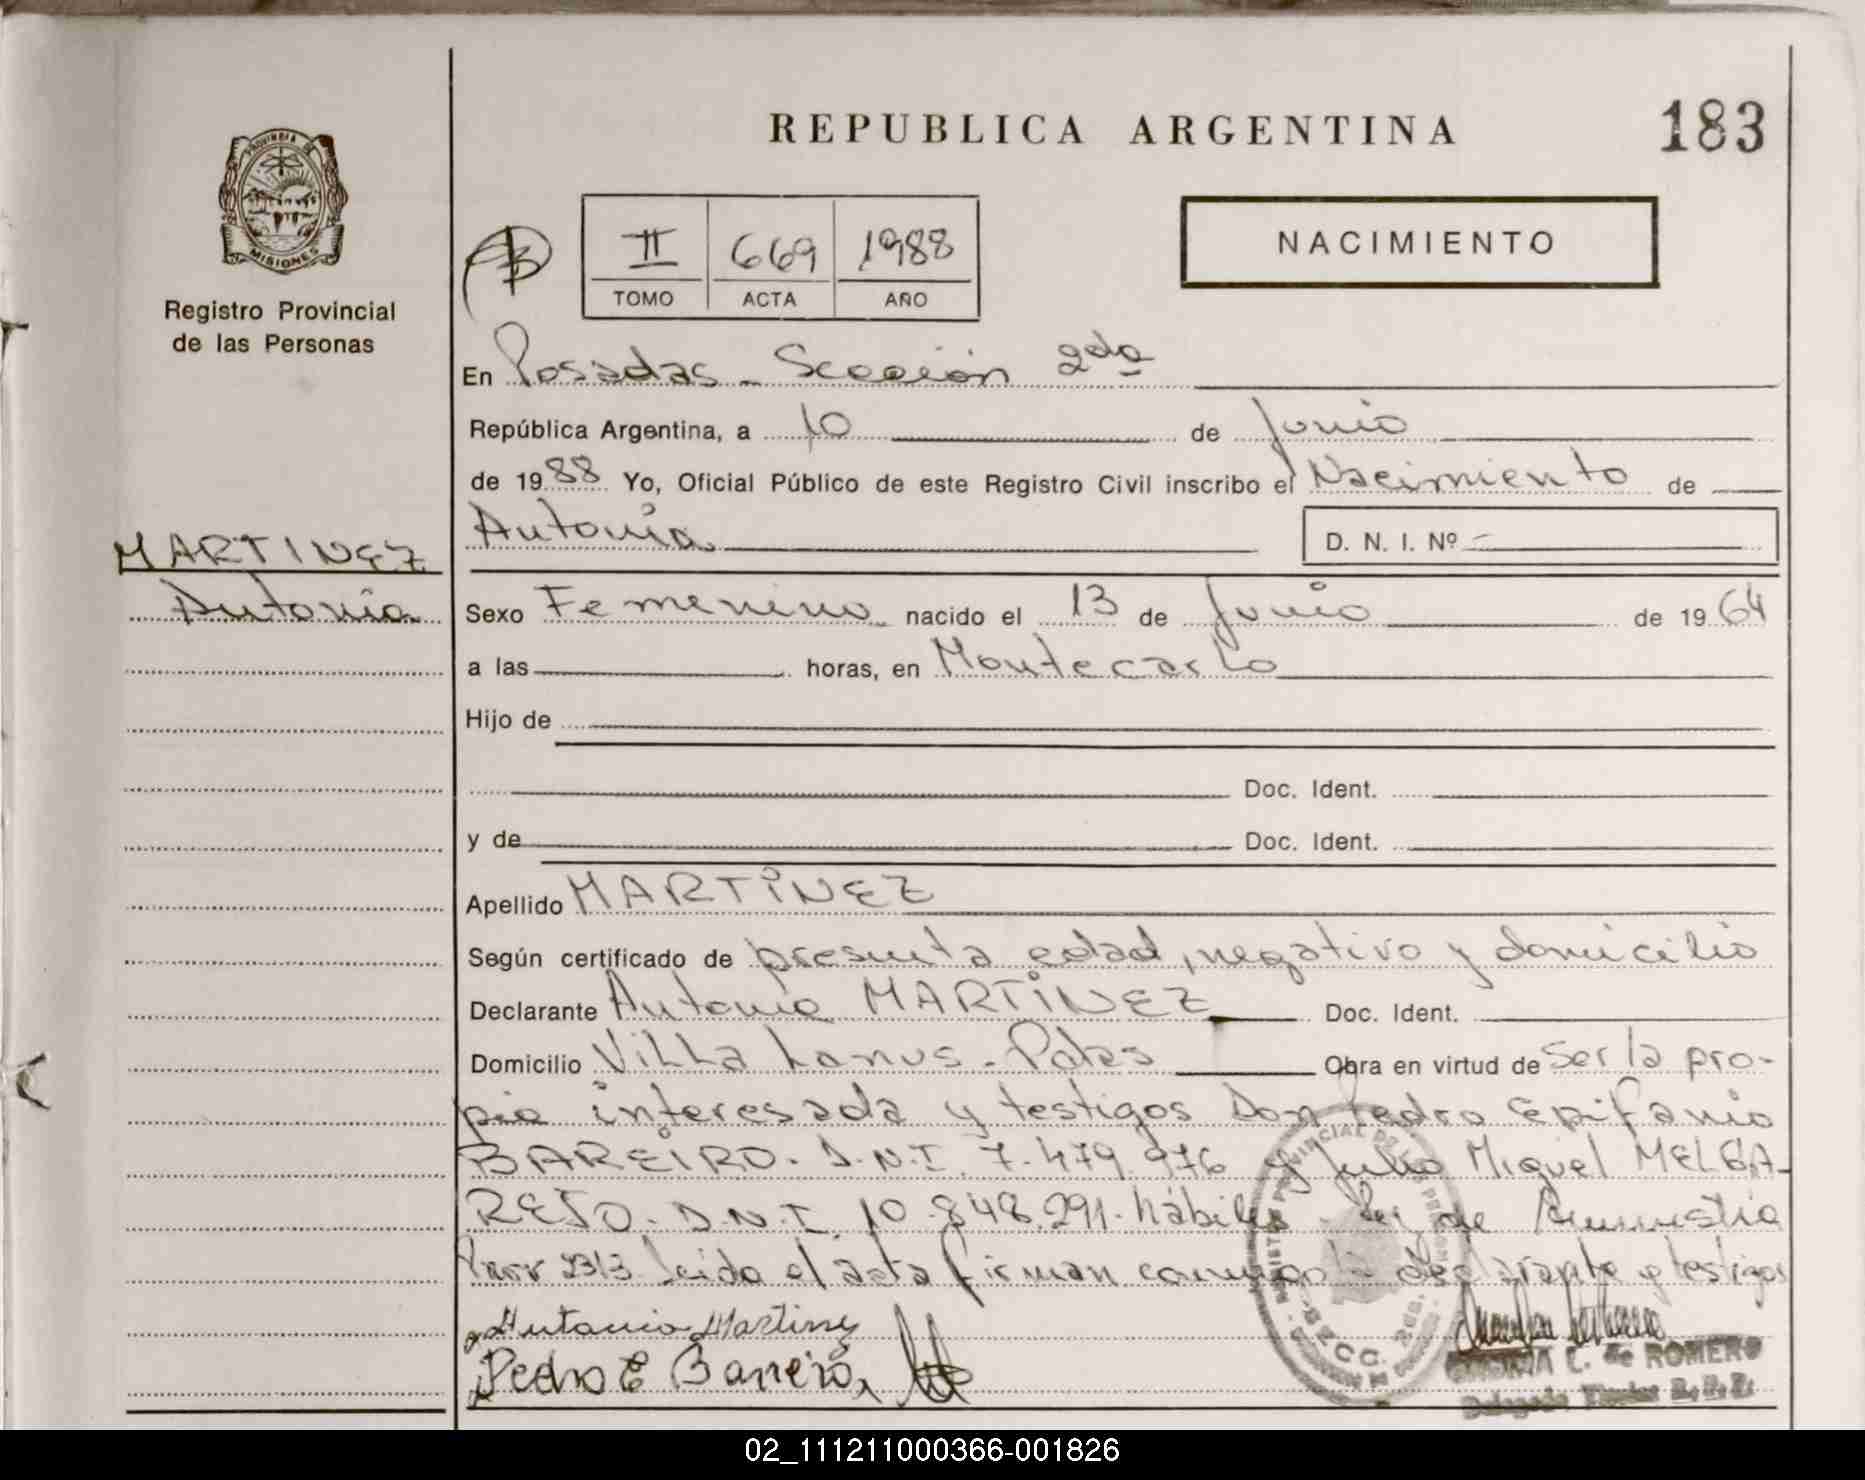 REPUBLICA ARGENTINA
183
PROVINCIA DE
MISIONES
Registro Provincial
de las Personas
II 669 1988
TOMO ACTA AÑO
NACIMIENTO
En Posadas - Sección 2da
República Argentina, a 10 de Junio
de 1988 Yo, Oficial Público de este Registro Civil inscribo el Nacimiento de
Antonia D. N. I. Nº
MARTINEZ
Antonia
Sexo Femenino nacido el 13 de Junio de 1964
a las horas, en Montecarlo
Hijo de
Doc. Ident.
y de Doc. Ident.
Apellido MARTINEZ
Según certificado de presunta edad, negativo y domicilio
Declarante Antonia MARTINEZ Doc. Ident.
Domicilio Villa Lanus - Pdas Obra en virtud de ser la pro-
pia interesada y testigos Don Pedro Epifanio
BAREIRO. D.N.I. 7.479.976 y Julio Miguel MELGA-
REJO. D.N.I. 10.848.291. hábiles Ley de Amnistia
2313 Leida el acta firman conmigo la declarante y testigos
Antonia Martinez
Pedro E Barreiro
C. de ROMERO
02_111211000366-001826